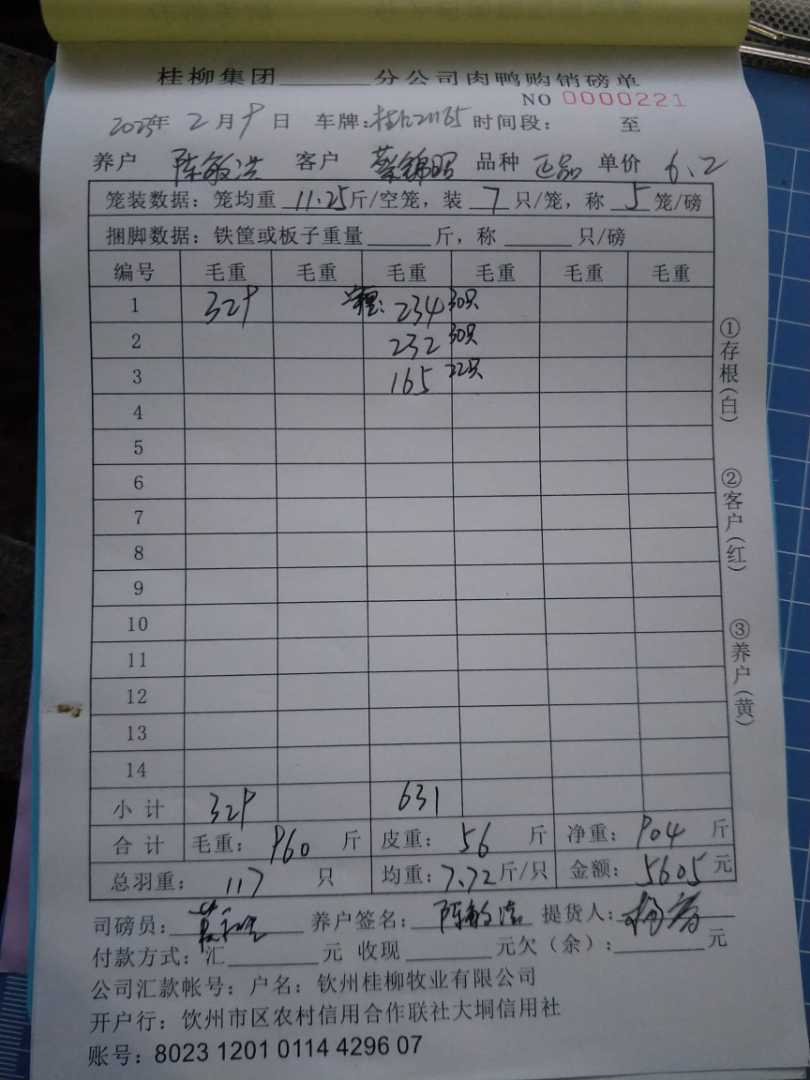 桂柳集团______分公司肉鸭购销磅单
NO 0000221
2025年 2月9日 车牌: 时间段: 至
养户 陈敏浩 客户 蔡锦昭 品种 正品 单价 6.2
笼装数据：笼均重 11.25斤/空笼，装 7 只/笼，称 5 笼/磅
捆脚数据：铁筐或板子重量______斤，称______只/磅
编号 毛重 毛重 毛重 毛重 毛重 毛重
1 329 234 30只
2 232 30只
3 165 22只
4
5
6
7
8
9
10
11
12
13
14
小计 329 631
合计 毛重：960 斤 皮重：56 斤 净重：904 斤
总羽重：117 只 均重：7.72斤/只 金额：5605元
司磅员： 养户签名：陈敏浩 提货人：
付款方式：汇______元 收现______元欠（余）：______元
公司汇款帐号：户名：钦州桂柳牧业有限公司
开户行：钦州市区农村信用合作联社大垌信用社
账号：8023 1201 0114 4296 07
①存根(白)
②客户(红)
③养户(黄)